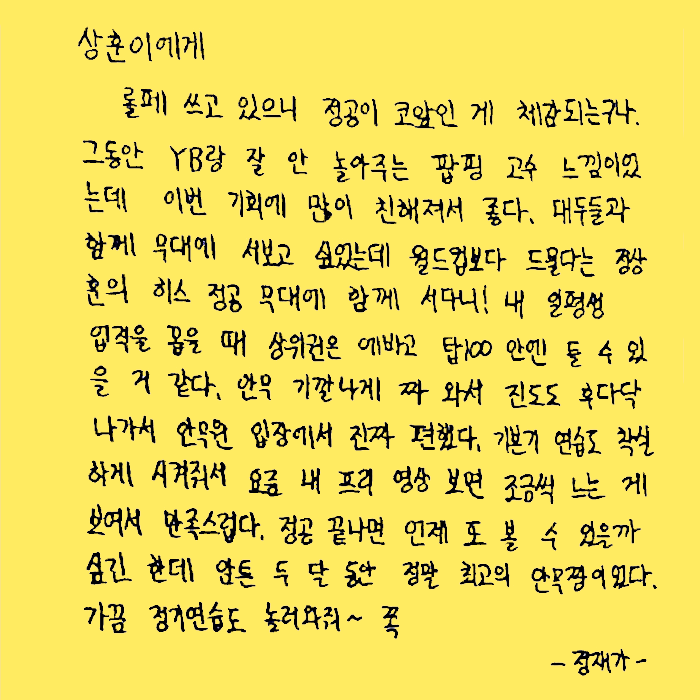 상훈이에게
롤페 쓰고 있으니 정공이 코앞인 게 체감되는구나.
그동안 YB랑 잘 안 놀아주는 팝핑 고수 느낌이었
는데 이번 기회에 많이 친해져서 좋다. 대두들과
함께 무대에 서보고 싶었는데 월드컵보다 드물다는 정상
훈의 히스 정공 무대에 함께 서다니! 내 일평생
업적을 꼽을 때 상위권은 에바고 탑100 안엔 들 수 있
을 거 같다. 안무 기깔나게 짜 와서 진도도 후다닥
나가서 안무원 입장에서 진짜 편했다. 기본기 연습도 착실
하게 시켜줘서 요즘 내 프리 영상 보면 조금씩 느는 게
보여서 만족스럽다. 정공 끝나면 언제 또 볼 수 있을까
싶긴 한데 암튼 두 달 동안 정말 최고의 안무짱이었다.
가끔 정기연습도 놀러와줘~ 꼭
- 정재가 -